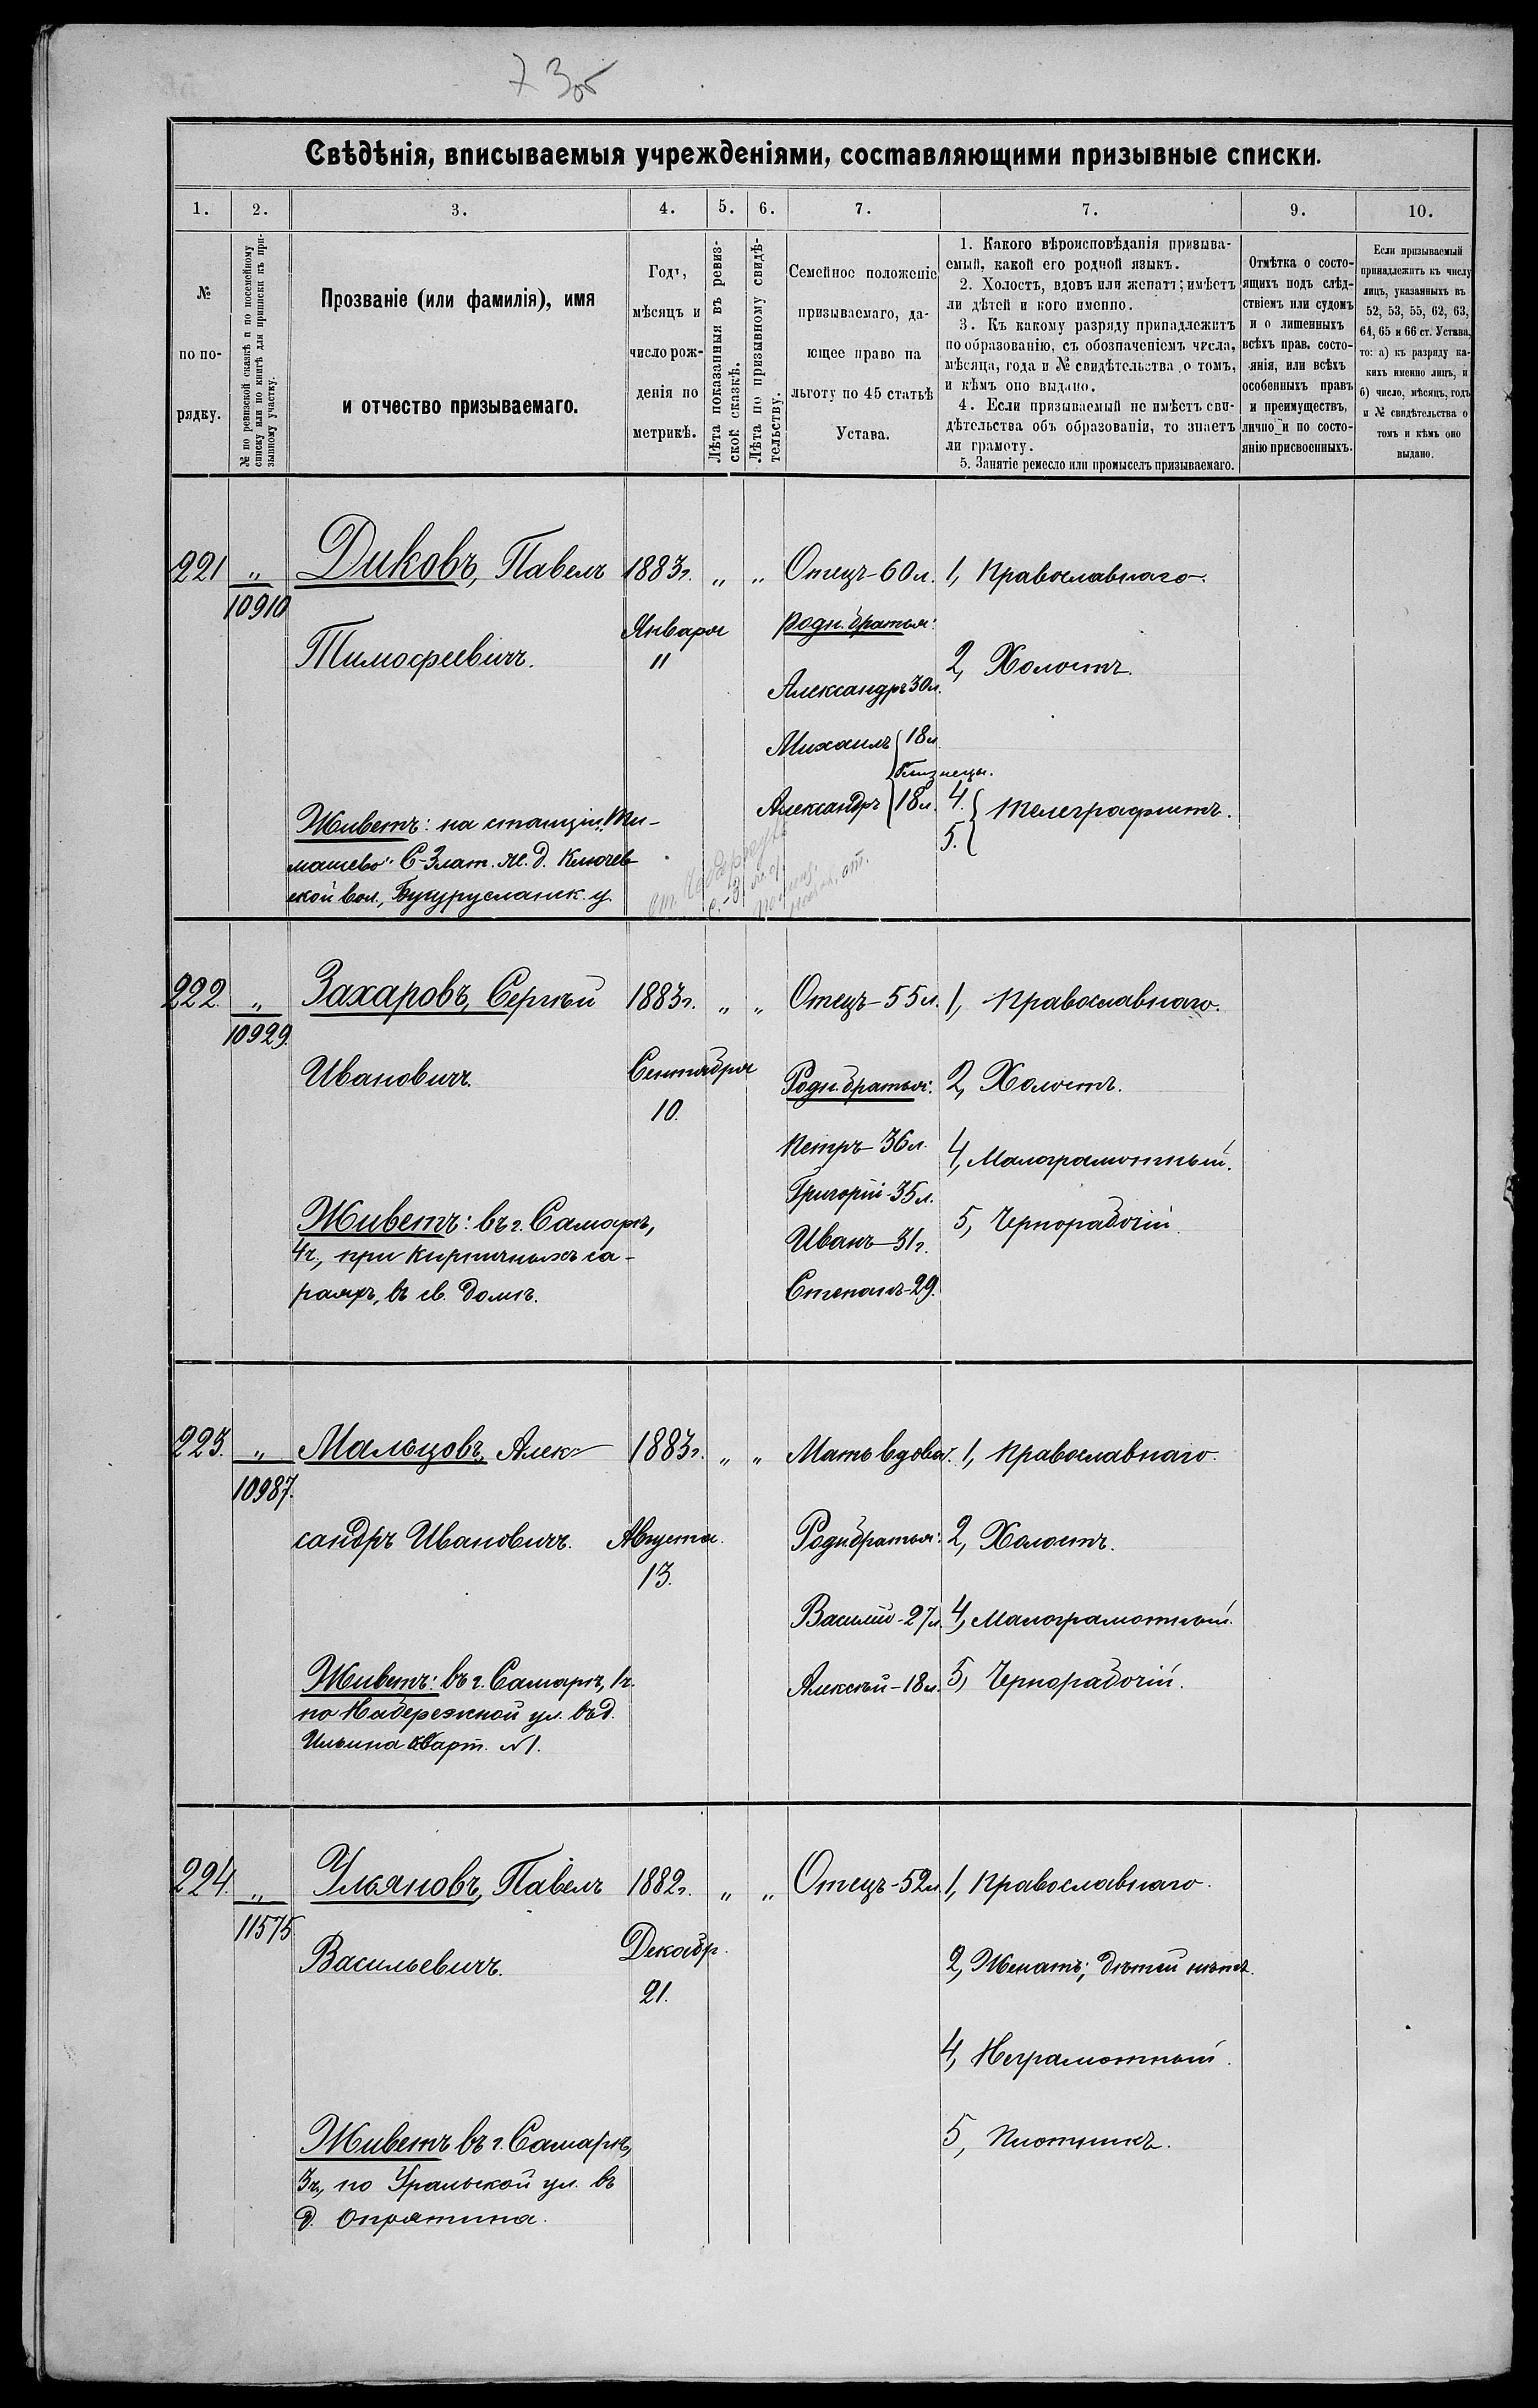 73об
Свѣдѣнія, вписываемыя учрежденіями, составляющими призывные списки.
1. 2. 3. 4. 5. 6. 7. 7. 9. 10.
№
по по-
рядку.
№ по ревизской сказкѣ и по посемейному
списку или по книгѣ для приписки къ при-
зывному участку.
Прозваніе (или фамилія), имя
и отчество призываемаго.
Годъ,
мѣсяцъ и
число рож-
денія по
метрикѣ.
Лѣта показанныя въ ревиз-
ской сказкѣ.
Лѣта по призывному свидѣ-
тельству.
Семейное положеніе
призываемаго, да-
ющее право на
льготу по 45 статьѣ
Устава.
1. Какого вѣроисповѣданія призыва-
емый, какой его родной языкъ.
2. Холостъ, вдовъ или женатъ; имѣетъ
ли дѣтей и кого именно.
3. Къ какому разряду принадлежитъ
по образованію, съ обозначеніемъ числа,
мѣсяца, года и № свидѣтельства о томъ,
и кѣмъ оно выдано.
4. Если призываемый не имѣетъ сви-
дѣтельства объ образованіи, то знаетъ
ли грамоту.
5. Занятіе ремесло или промыселъ призываемаго.
Отмѣтка о состо-
ящихъ подъ слѣд-
ствіемъ или судомъ
и о лишенныхъ
всѣхъ прав. состо-
янія, или всѣхъ
особенныхъ правъ
и преимуществъ,
лично и по состо-
янію присвоенныхъ.
Если призываемый
принадлежитъ къ числу
лицъ, указанныхъ въ
52, 53, 55, 62, 63,
64, 65 и 66 ст. Устава.
то: а) къ разряду ка-
кихъ именно лицъ, и
б) число, мѣсяцъ, годъ
и № свидѣтельства о
томъ и кѣмъ оно
выдано.
221 „ Диковъ, Павелъ 1883г. „ „ Отецъ-60л. 1, Православнаго.
10910
Тимофеевичъ.
Января
11
Родн. братья:
Александръ 30л.
2, Холостъ.
Михаилъ 18л.
близнецы.
Александръ 18л.
4.
5. Телеграфистъ.
Живетъ: на станціи „Ти-
машево" С-Злат. ж. д. Ключев-
ской вол., Бугурусланск. у.
222. „ Захаровъ, Сергѣй 1883г. „ „ Отецъ-55л. 1, Православнаго.
10929.
Ивановичъ.
Сентября
10.
Родн. братья:
2, Холостъ.
Петръ-36л.
Григорій-35л.
Иванъ-31г.
Степанъ-29.
4, Малограмотный.
5, Чернорабочій.
Живетъ: въ г. Самарѣ,
4ч., при кирпичныхъ са-
раяхъ, въ св. домѣ.
223. „ Мальцовъ, Алек- 1883г. „ „ Мать вдова. 1, Православнаго.
10987.
сандръ Ивановичъ.
Августа.
13.
Родн. братья:
2, Холостъ.
Василій-27л.
4, Малограмотный.
Алексѣй-18л.
5, Чернорабочій.
Живетъ: въ г. Самарѣ, 1ч.
по Набережной ул. въ д.
Ильина кварт. №1.
224. „ Ульяновъ, Павелъ 1882г. „ „ Отецъ-52л. 1, Православнаго.
11575
Васильевичъ.
Декабр.
21.
2, Женатъ; дѣтей нѣтъ.
4, Неграмотный.
5, Плотникъ.
Живетъ въ г. Самарѣ,
3ч., по Уральской ул. въ
д. Опрятина.